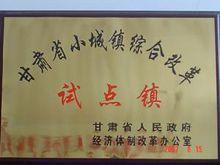 甘肃省小城镇综合改革
试点镇
甘肃省人民政府
经济体制改革办公室
2007 8 15